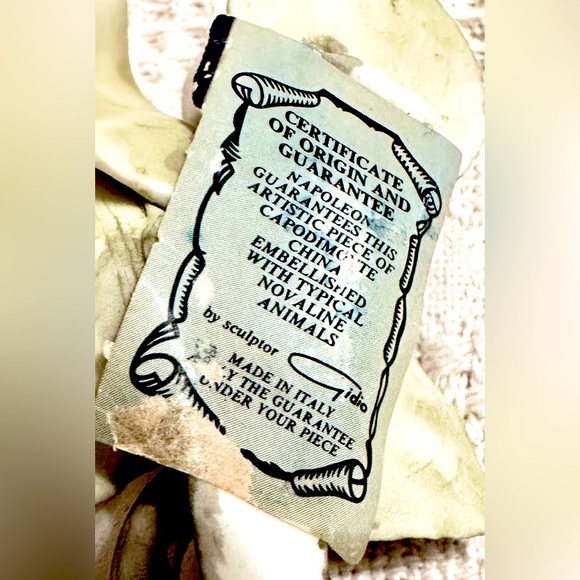 CERTIFICATE
OF ORIGIN AND
GUARANTEE
NAPOLEON
GUARANTEES THIS
ARTISTIC PIECE OF
CAPODIMONTE
CHINA
EMBELLISHED
WITH TYPICAL
NOVALINE
ANIMALS
by sculptor Gidio
MADE IN ITALY
THE GUARANTEE
UNDER YOUR PIECE